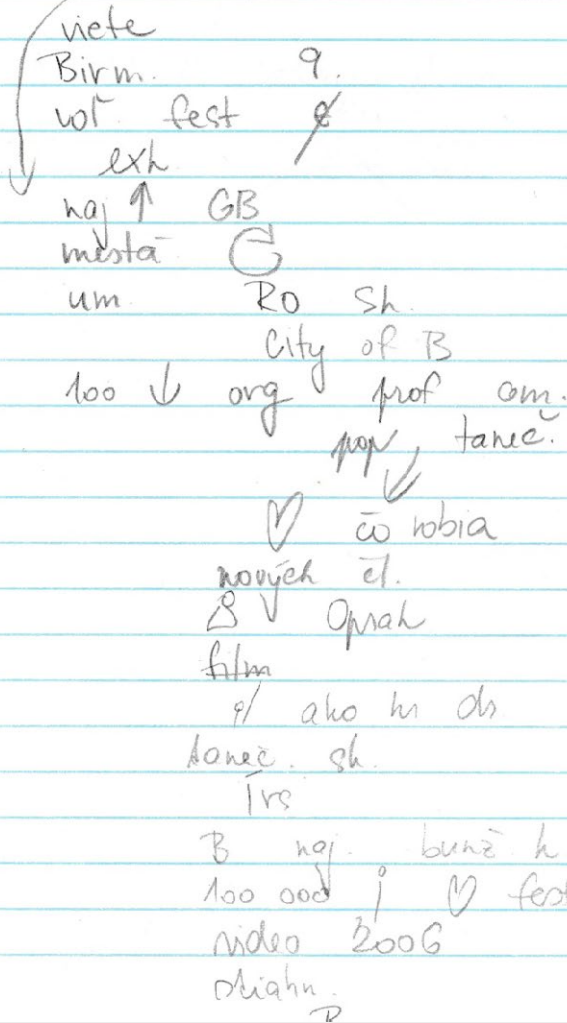 viete
Birm. 9.
voľ fest
exh
naj ↑ GB
mestá
um Ro Sh.
City of B
100 ↓ org prof com.
pop, taneč.
♡ čo robia
nových čl.
Oprah
film
ako
taneč. sh.
Irs
B naj.
100 000 ♡ fest
video 2006
B